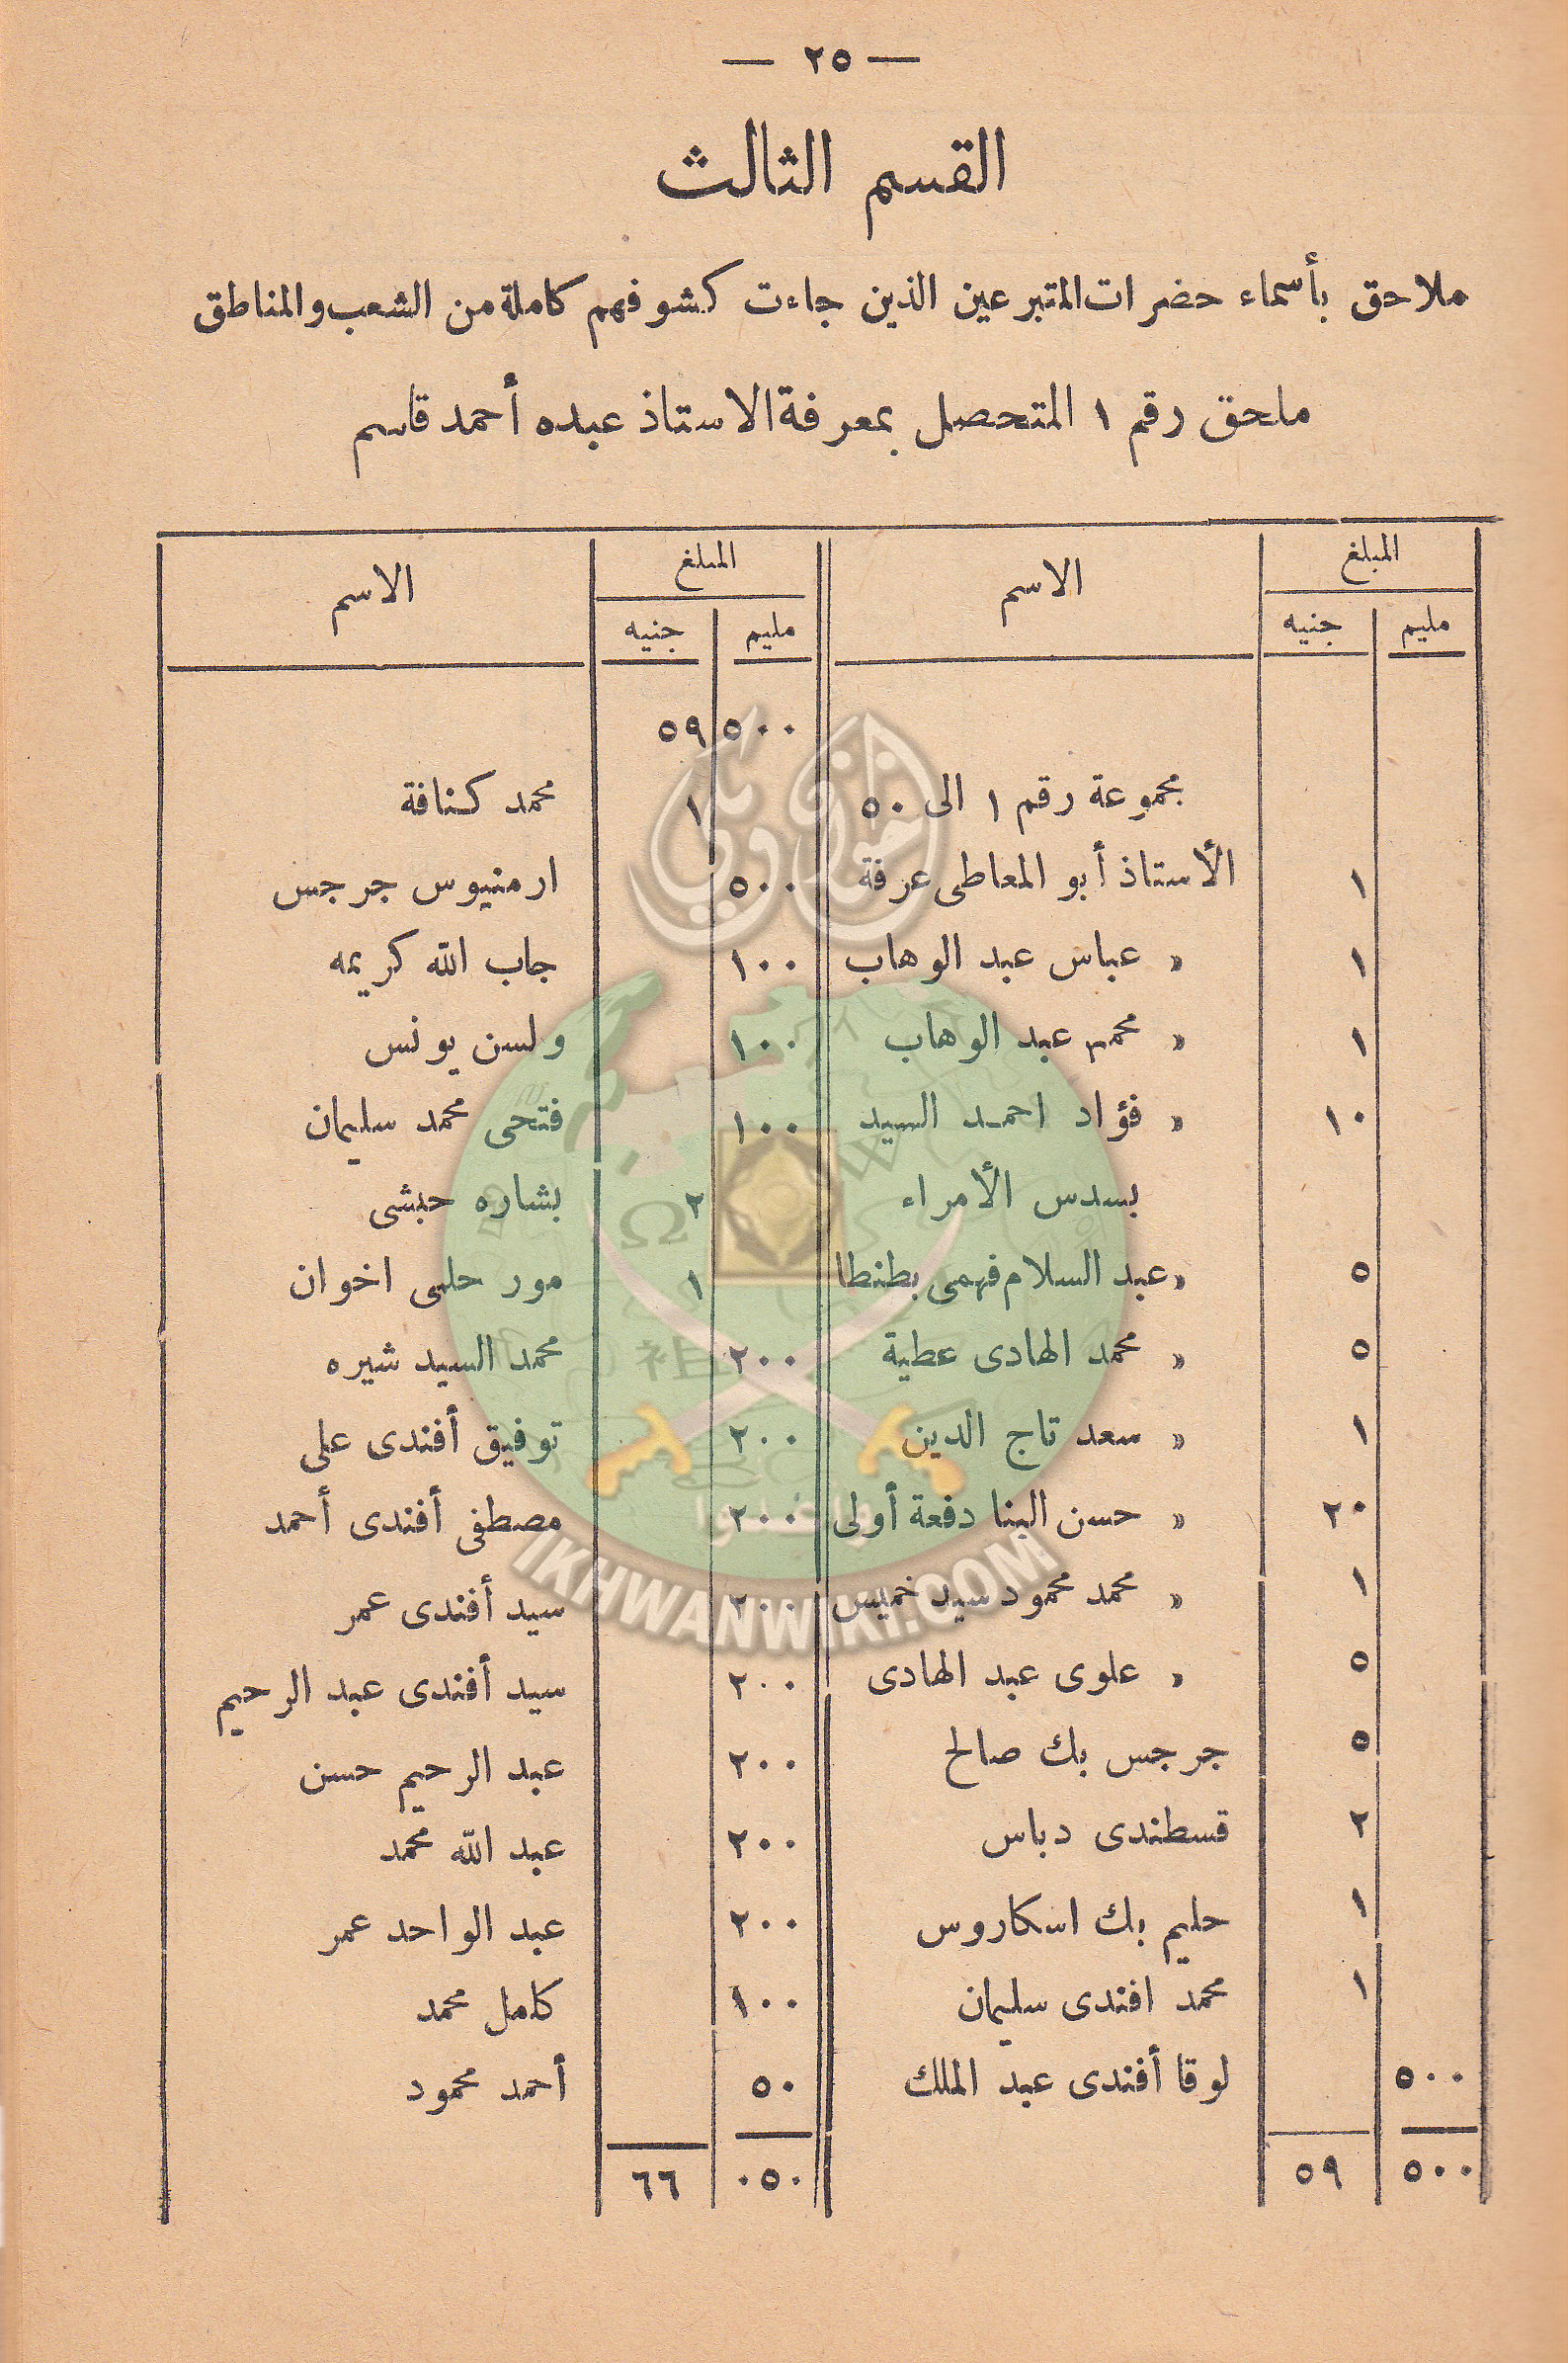 — ٢٥ —
القسم الثالث
ملاحق بأسماء حضرات المتبرعين الذين جاءت كشوفهم كاملة من الشعب والمناطق
ملحق رقم ١ المتحصل بمعرفة الاستاذ عبده أحمد قاسم
المبلغ الاسم المبلغ الاسم
مليم جنيه مليم جنيه
٥٠٠ ٥٩
مجموعة رقم ١ الى ٥٠
١ الأستاذ أبو المعاطى عرفة
١ » عباس عبد الوهاب
١ » محمد عبد الوهاب
١٠ » فؤاد احمد السيد
بسدس الأمراء
٥ » عبد السلام فهمى بطنطا
٥ » محمد الهادى عطية
١ » سعد تاج الدين
٢٠ » حسن البنا دفعة أولى
١ » محمد محمود سيد خميس
٥ » علوى عبد الهادى
٥ جرجس بك صالح
٢ قسطندى دباس
١ حليم بك اسكاروس
١ محمد افندى سليمان
٥٠٠ لوقا أفندى عبد الملك
٥٠٠ ٥٩
١ محمد كنافة
٥٠٠ ارمنيوس جرجس
١٠٠ جاب الله كريمه
١٠٠ ولسن يونس
١٠٠ فتحى محمد سليمان
٢ بشاره حبشى
١ مور حلمى اخوان
٢٠٠ محمد السيد شيره
٢٠٠ توفيق أفندى على
٢٠٠ مصطفى أفندى أحمد
٢٠٠ سيد أفندى عمر
٢٠٠ سيد أفندى عبد الرحيم
٢٠٠ عبد الرحيم حسن
٢٠٠ عبد الله محمد
٢٠٠ عبد الواحد عمر
١٠٠ كامل محمد
٥٠ أحمد محمود
٠٥٠ ٦٦
إخوان ويكي
IKHWANWIKI.COM